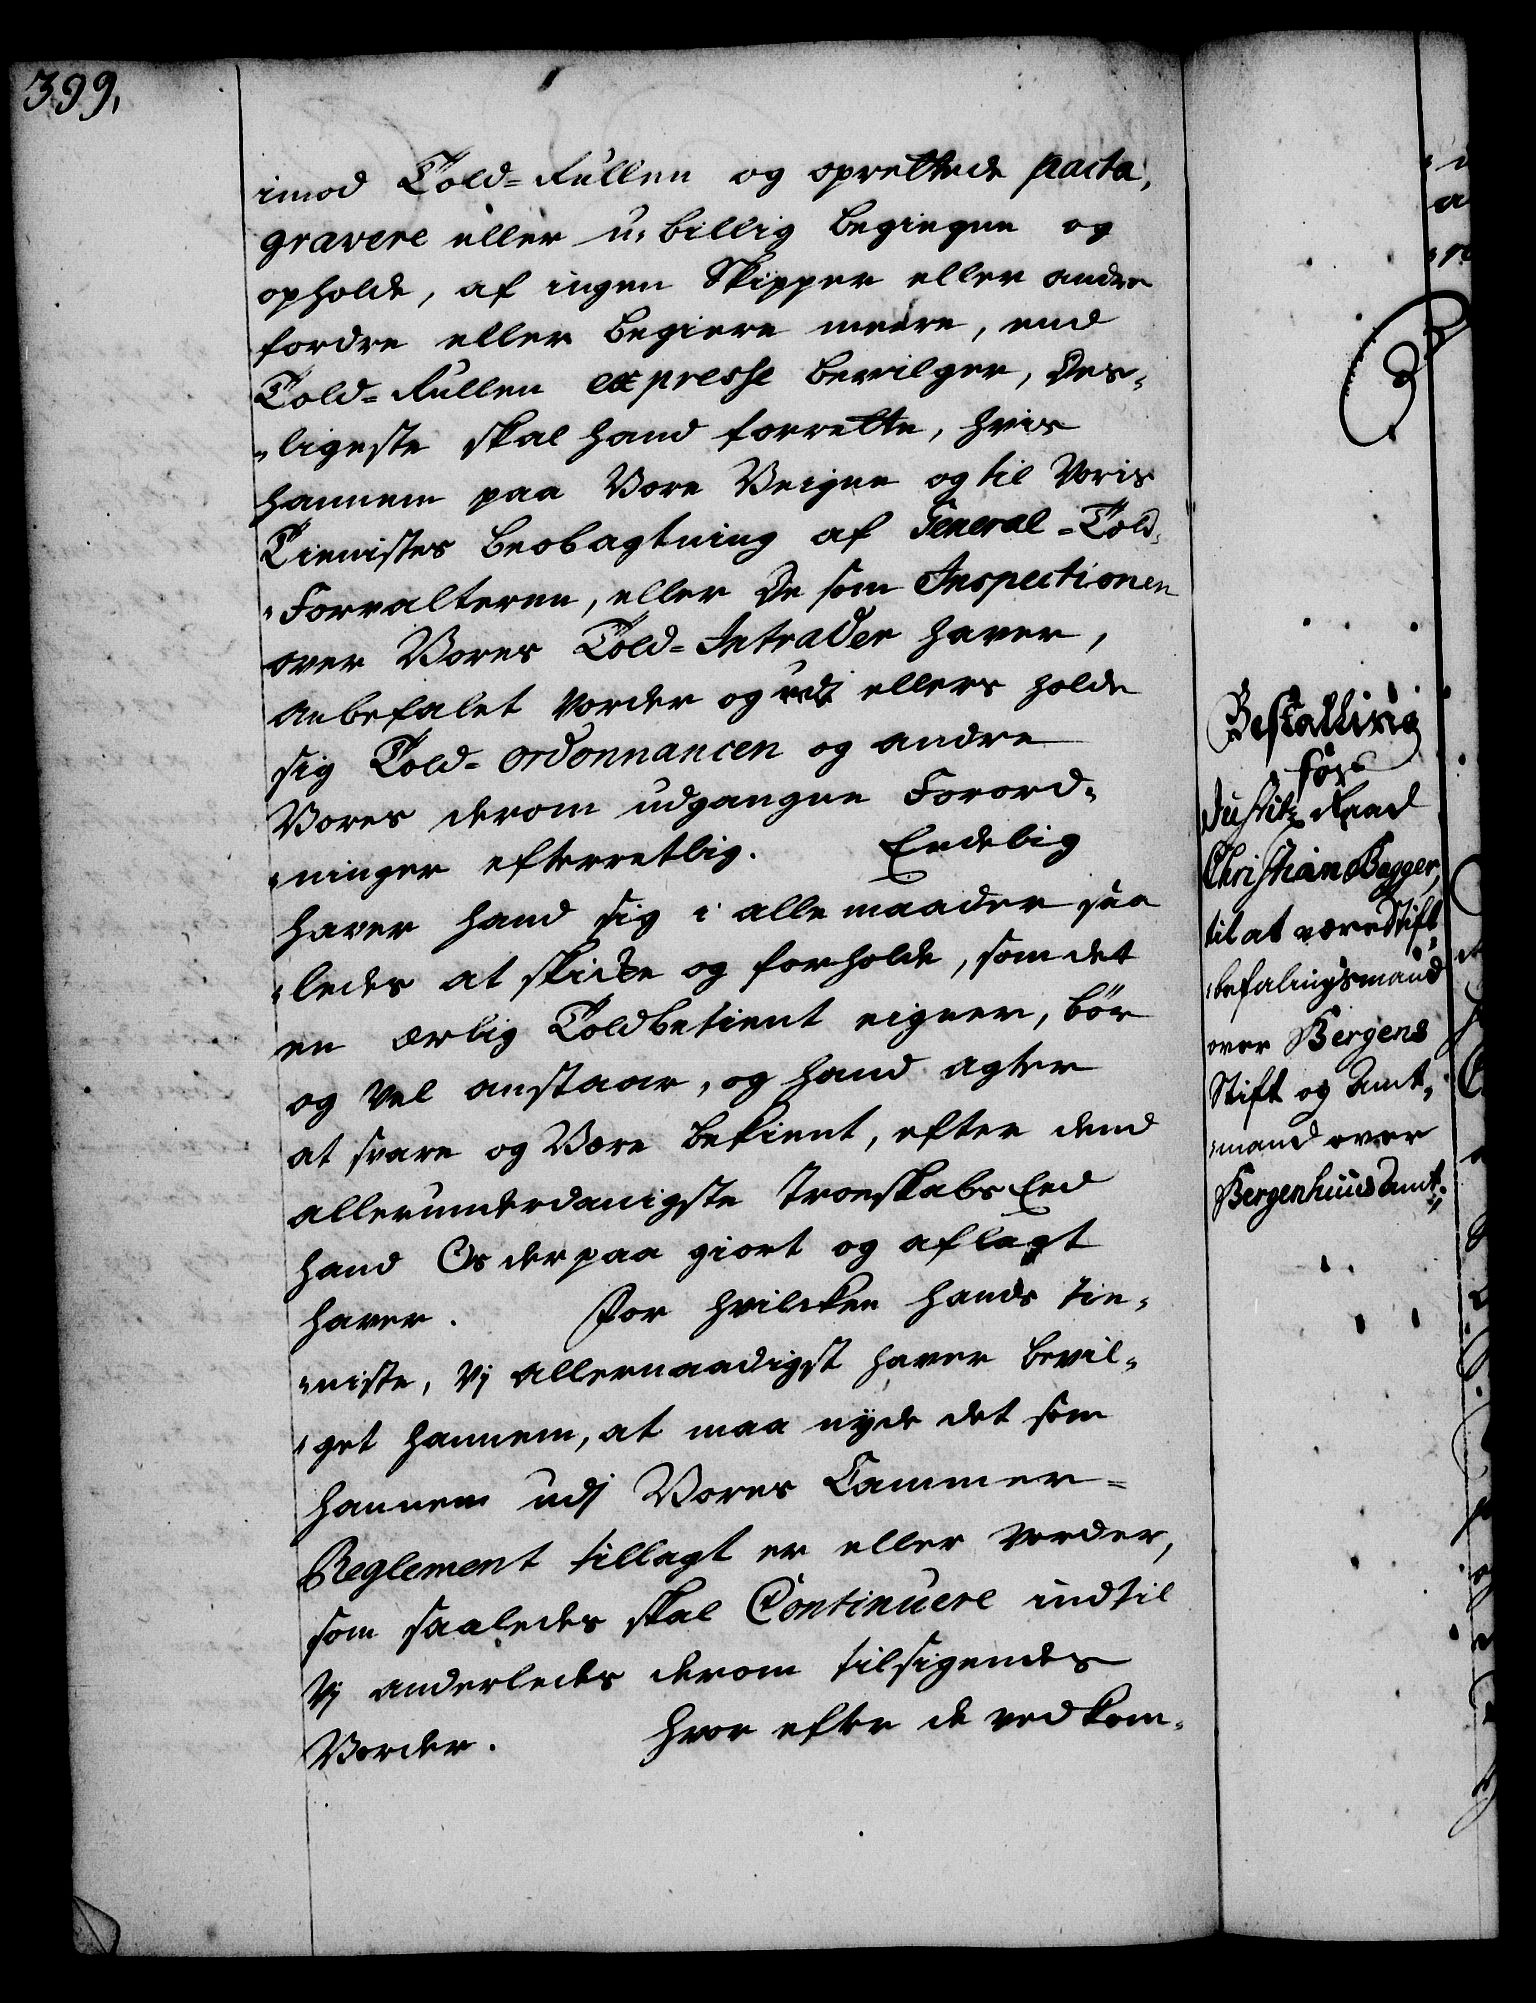 399.
imod Told-Rullen og oprettede pacta,
gravere eller u-billig begiegne og
opholde, af ingen Skipper eller andre
fordre eller begiere meere, end
Told-Rullen expresse bevilger, Des-
ligeste skal hand forrette, hvis
hannem paa Vore Veigne og til Voris
Tienistes beobagtning af General-Told-
Forvalteren, eller De som Inspectionen
over Vores Told-Intrader haver,
anbefalet vorder og udj ellers holde
sig Told-ordonnancen og andre
Vores derom udgangne Forord-
ninger efterretlig. Endelig
haver hand sig i alle maader saa
ledes at skicke og forholde, som det
en ærlig Toldbetient eigner, bör
og vel anstaar, og hand agter
at svare og være bekient, efter dend
allerunderdanigste Troeskabs Eed
hand Os derpaa giort og aflagt
haver. For hvilcken hands tie-
niste, Vj allernaadigst haver bevil-
get hannem, at maa nyde det som
hannem udj Vores Cammer-
Reglement tillagt er eller vorder,
som saaledes skal Continuere indtil
Vj anderledes derom tilsigendes
Vorder. Hvor efter de vedkom-
Bestalling
for
Justitz Raad
Christian Bagger,
til at være Stift-
befalingsmand
over Bergens
Stift og Amt-
mand over
Bergenhuus Amt.